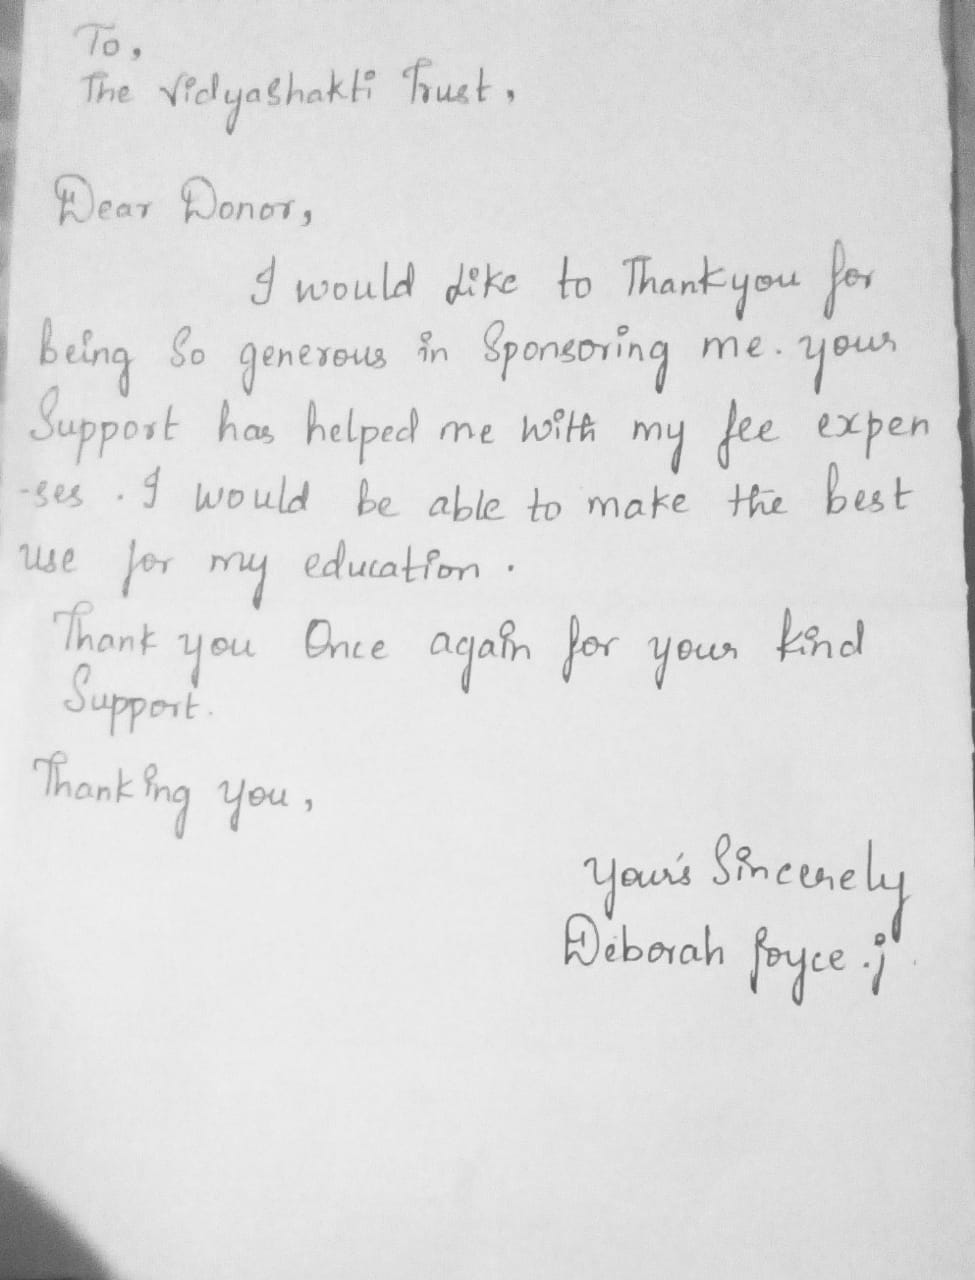 To,
The Vidyashakti Trust,
Dear Donor,
I would like to Thankyou for
being So generous in Sponsoring me. your
Support has helped me with my fee expen
-ses. I would be able to make the best
use for my education.
Thank you Once again for your kind
Support.
Thanking you,
your's Sincerely
Deborah Joyce.j